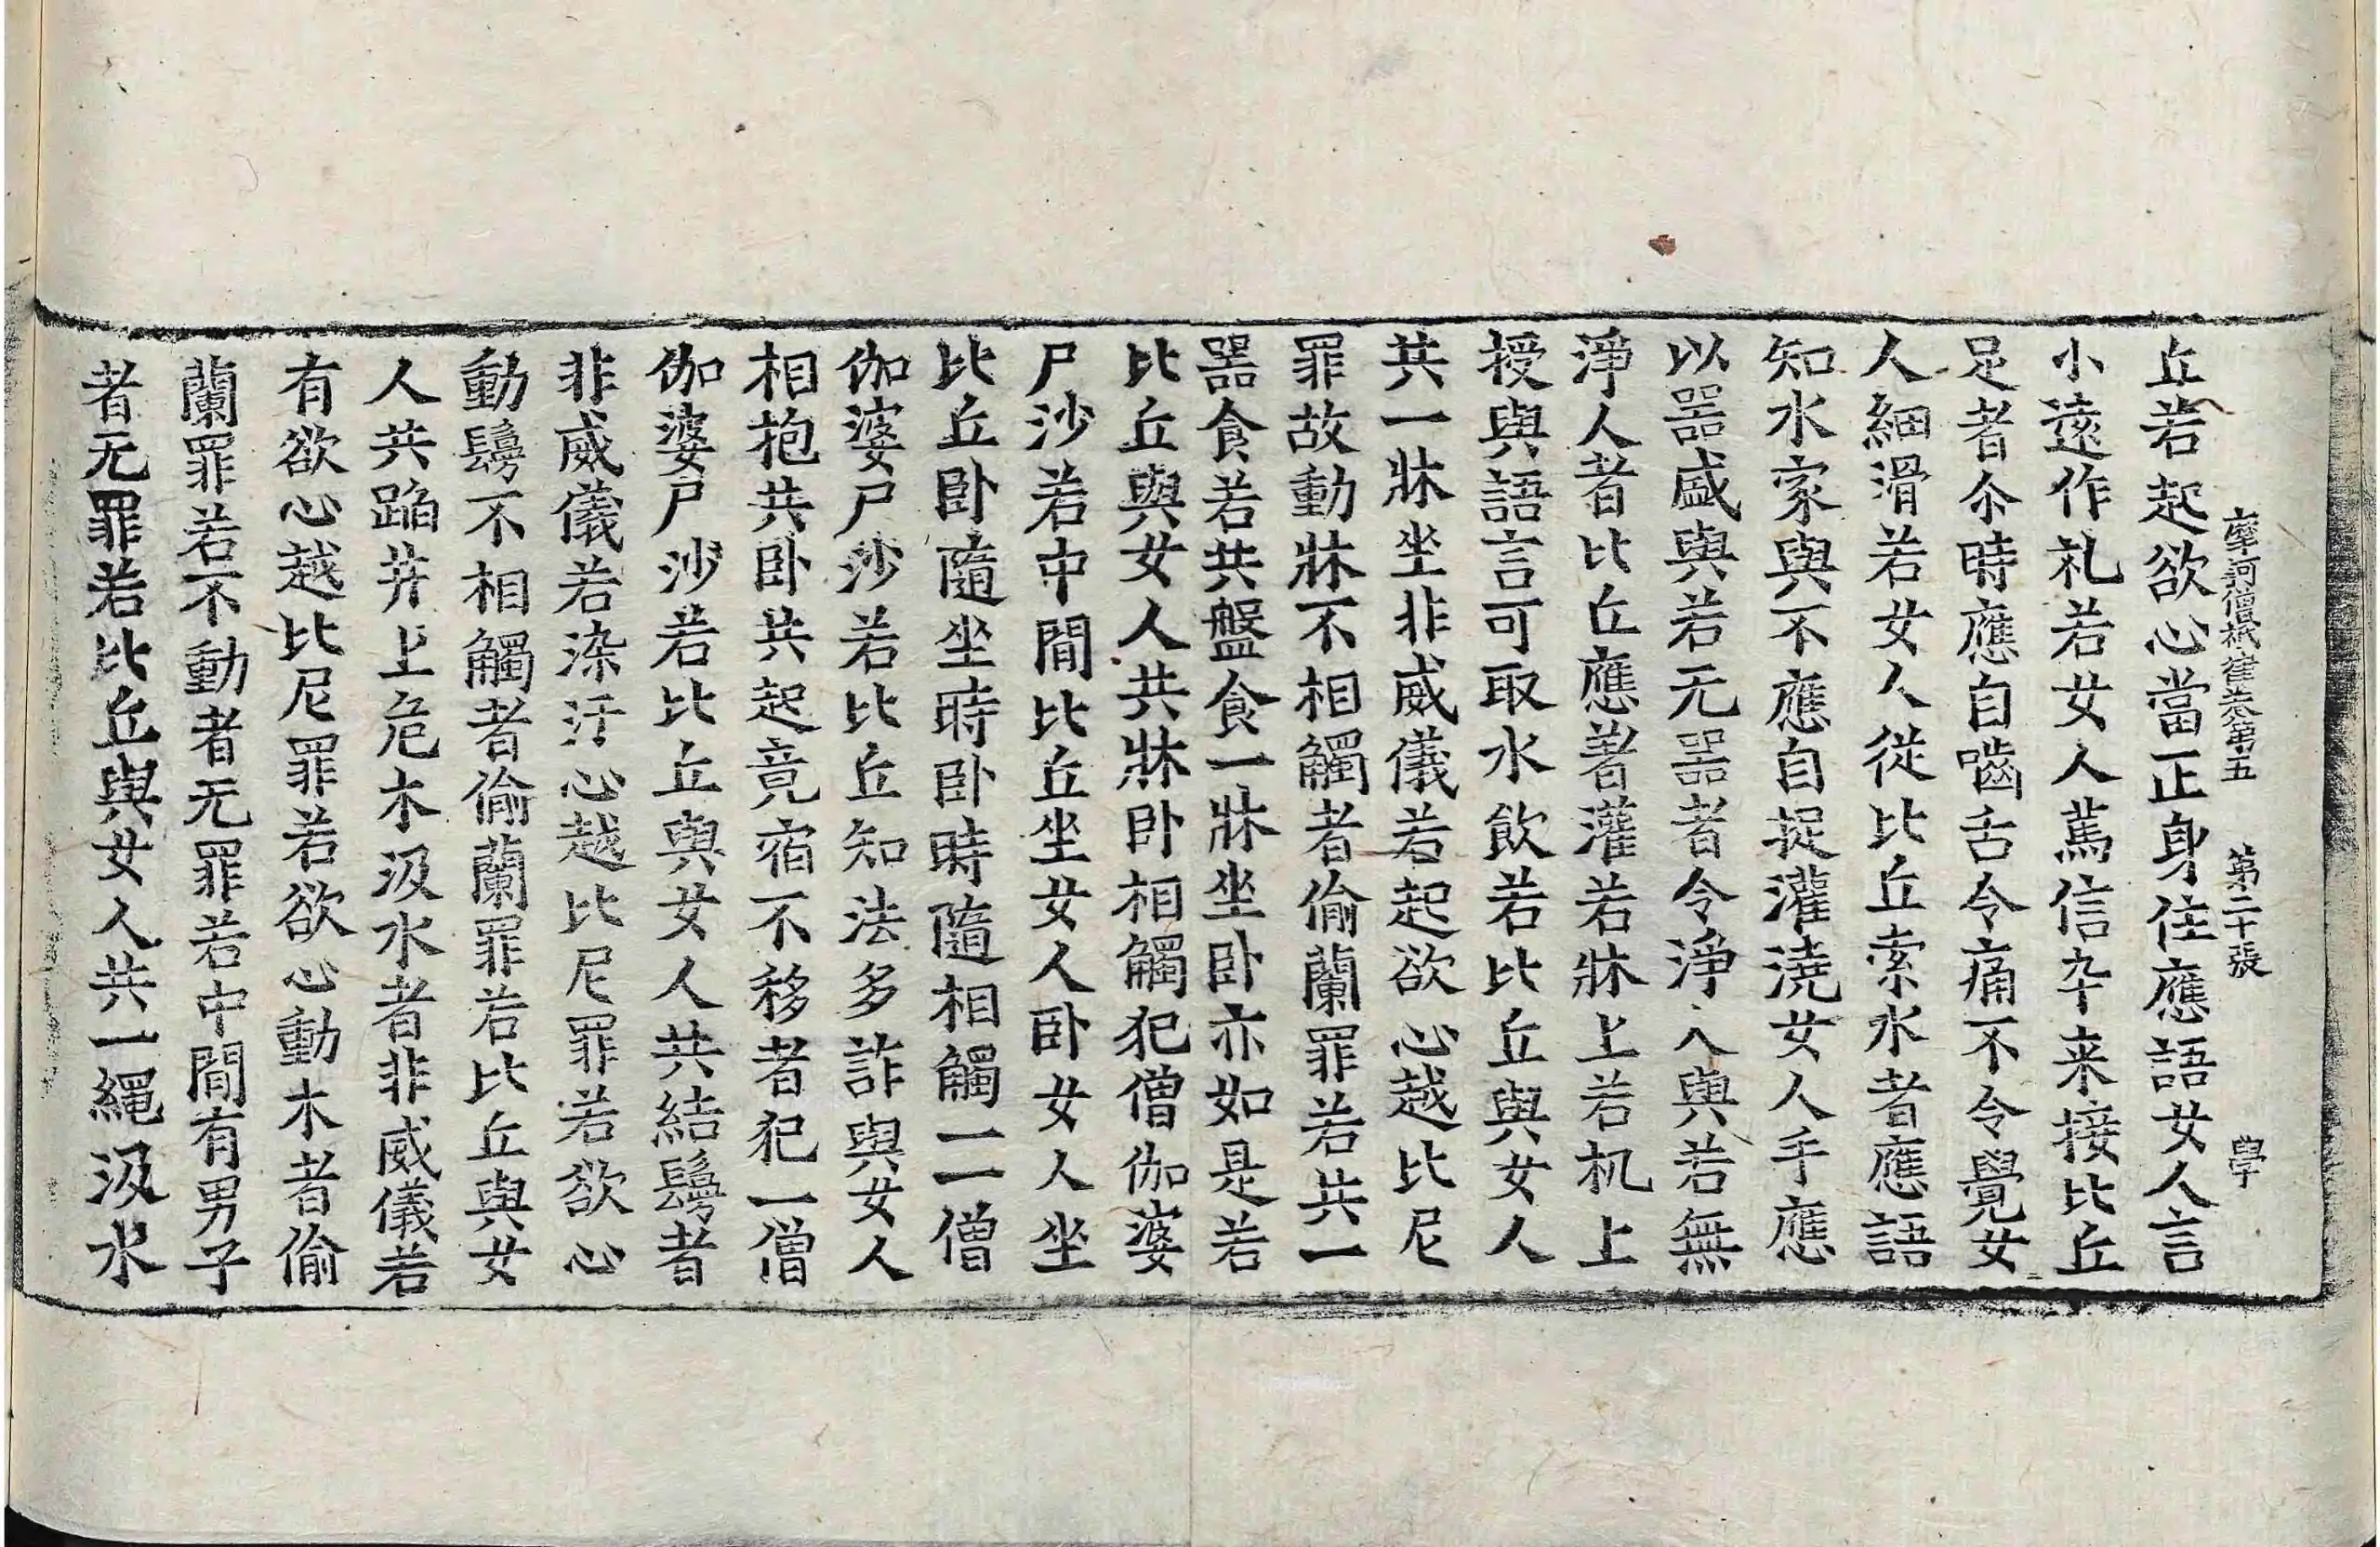 摩訶僧祇律卷第五 第二十張 學
丘若起欲心當正身住應語女人言
小遠作礼若女人篤信卒来接比丘
足者尒時應自嚙舌令痛不令覺女
人細滑若女人從比丘索水者應語
知水家與不應自捉灌澆女人手應
以器盛與若无器者令淨人與若無
淨人者比丘應著灌若牀上若机上
授與語言可取水飲若比丘與女人
共一牀坐非威儀若起欲心越比尼
罪故動牀不相觸者偷蘭罪若共一
器食若共盤食一牀坐卧亦如是若
比丘與女人共牀卧相觸犯僧伽婆
尸沙若中間比丘坐女人卧女人坐
比丘卧隨坐時卧時隨相觸一一僧
伽婆尸沙若比丘知法多詐與女人
相抱共卧共起竟宿不移者犯一僧
伽婆尸沙若比丘與女人共結鬘者
非威儀若染汙心越比尼罪若欲心
動鬘不相觸者偷蘭罪若比丘與女
人共蹈井上危木汲水者非威儀若
有欲心越比尼罪若欲心動木者偷
蘭罪若不動者无罪若中間有男子
者无罪若比丘與女人共一繩汲水